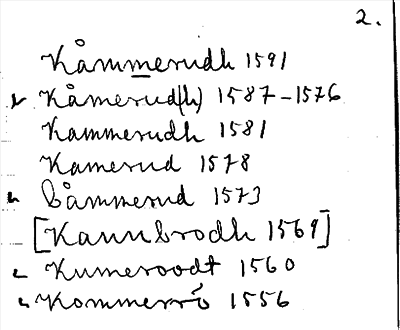 2.
Kåmmerudh 1591
Kåmerud(h) 1587-1576
Kammerudh 1581
Kamerud 1578
båmmerud 1573
[Kannbrodh 1569]
Kumeroodt 1560
Kommerrö 1556